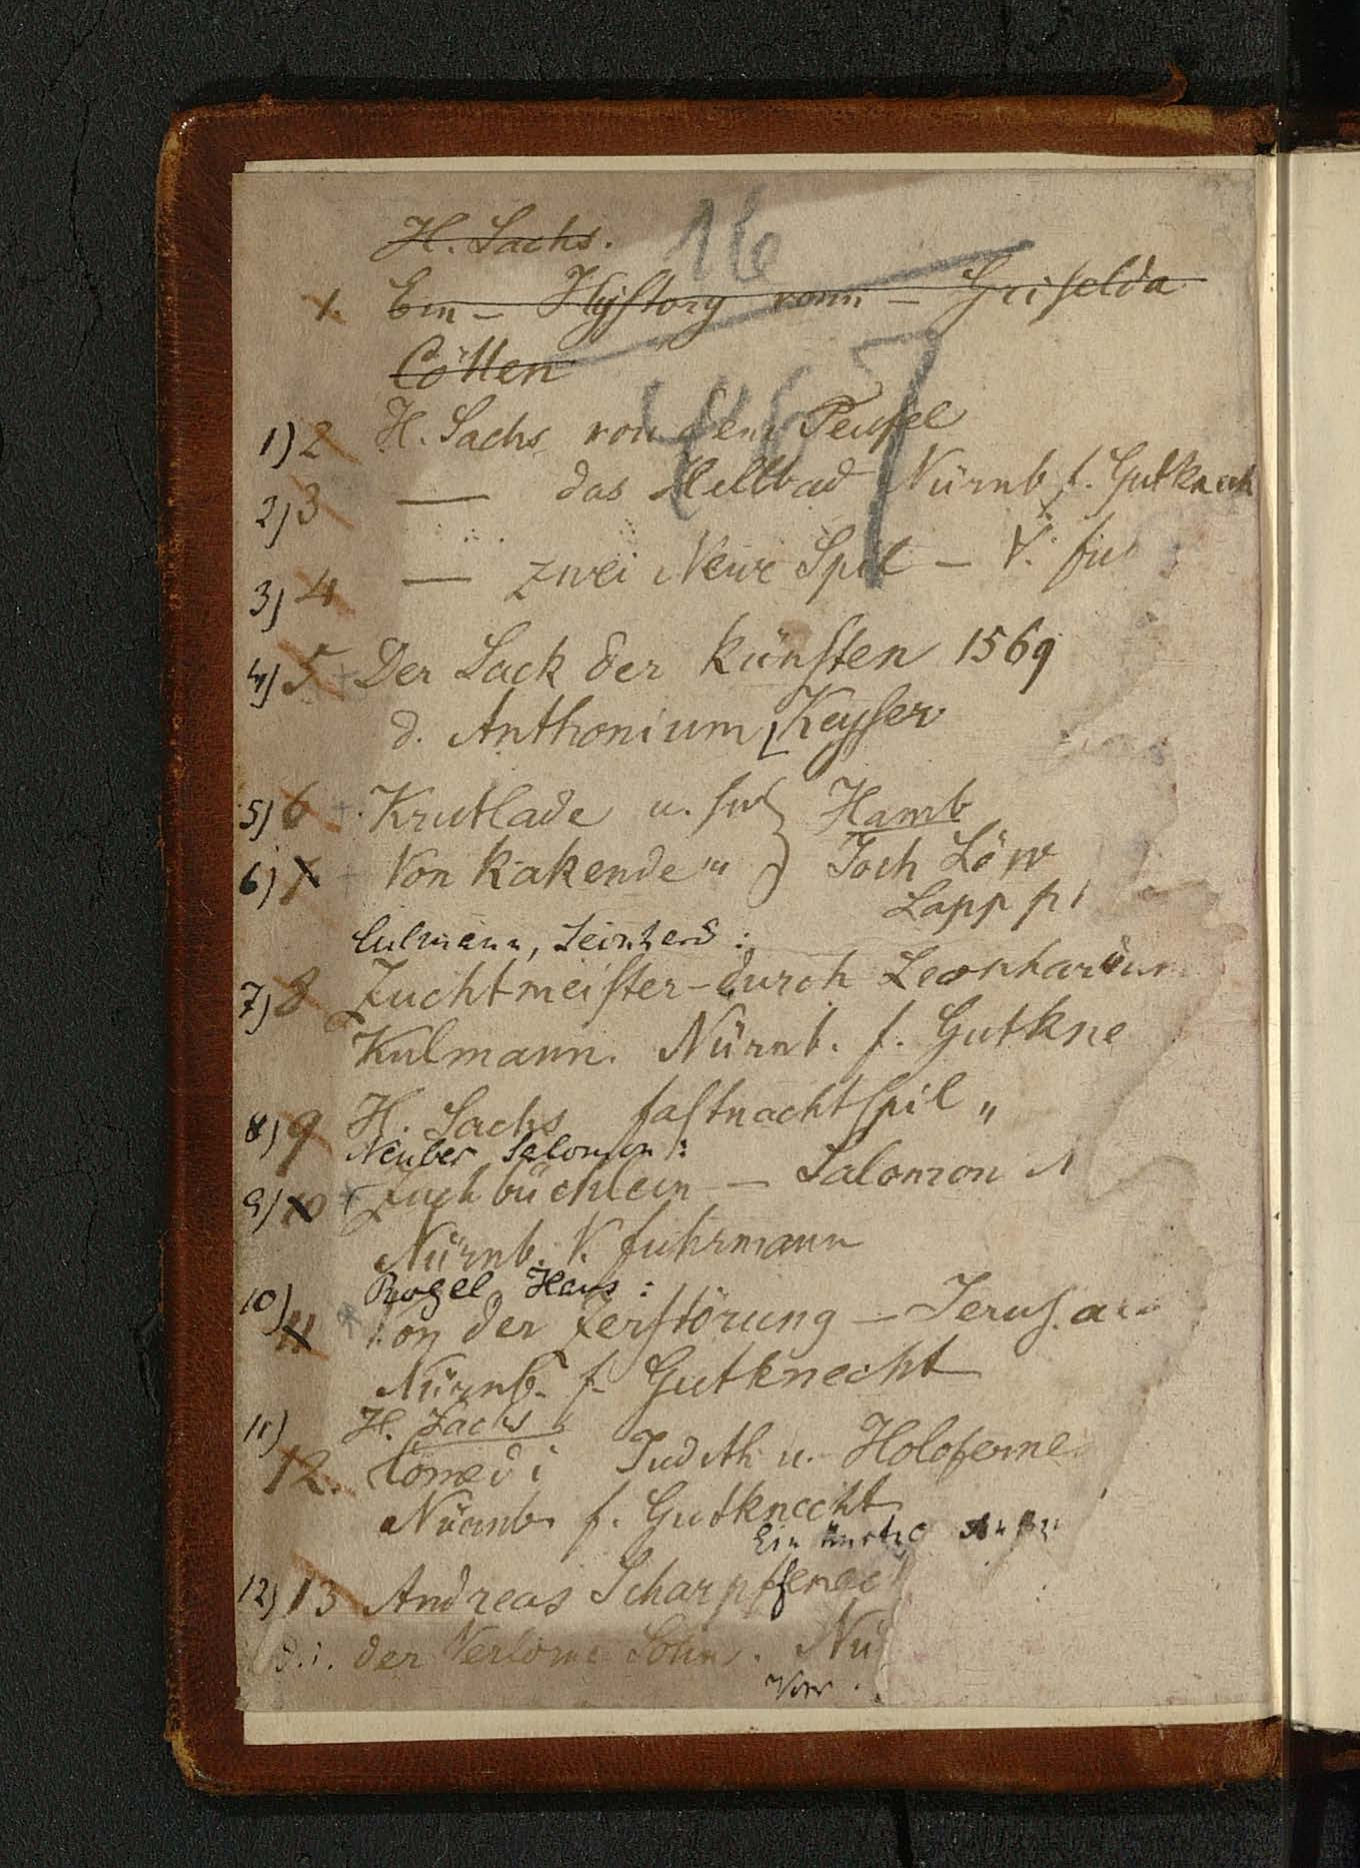 H. Sachs.
16
1. Ein – Hystory vonn – Griselda
Cöllen
467
1) 2 H. Sachs von dem Teufel
2) 3 — das Hellbad Nürnb. f. Gutknech
3) 4 — zwei Newe Spil – V. fu
4) 5 Der Sack der künsten 1569
d. Anthonium Keyser
5) 6 Krutlade u. Hamb
6) 7 Von Kakende Joch Löw
Lapp
Culmann, Leonhard:
7) 8 Zuchtmeister – durch Leonhardum
Kulmann. Nürnb. f. Gutkne
8) 9 H. Sachs fastnachtspil „
Neuber Salomon:
9) 10 Zuchbüchlein – Salomon N
Nürnb. V. fuhrmann
Rogel Hans:
10) 11 Von der Zerstörung – Jerusa
Nürnb. f. Gutknecht
11) H. Sachs
12. Comedi Judith u. Holoferne
Nürnb f. Gutknecht
Ein
12) 13 Andreas Scharpffenec
d.i. der Verlorne Sohn. Nü
Von